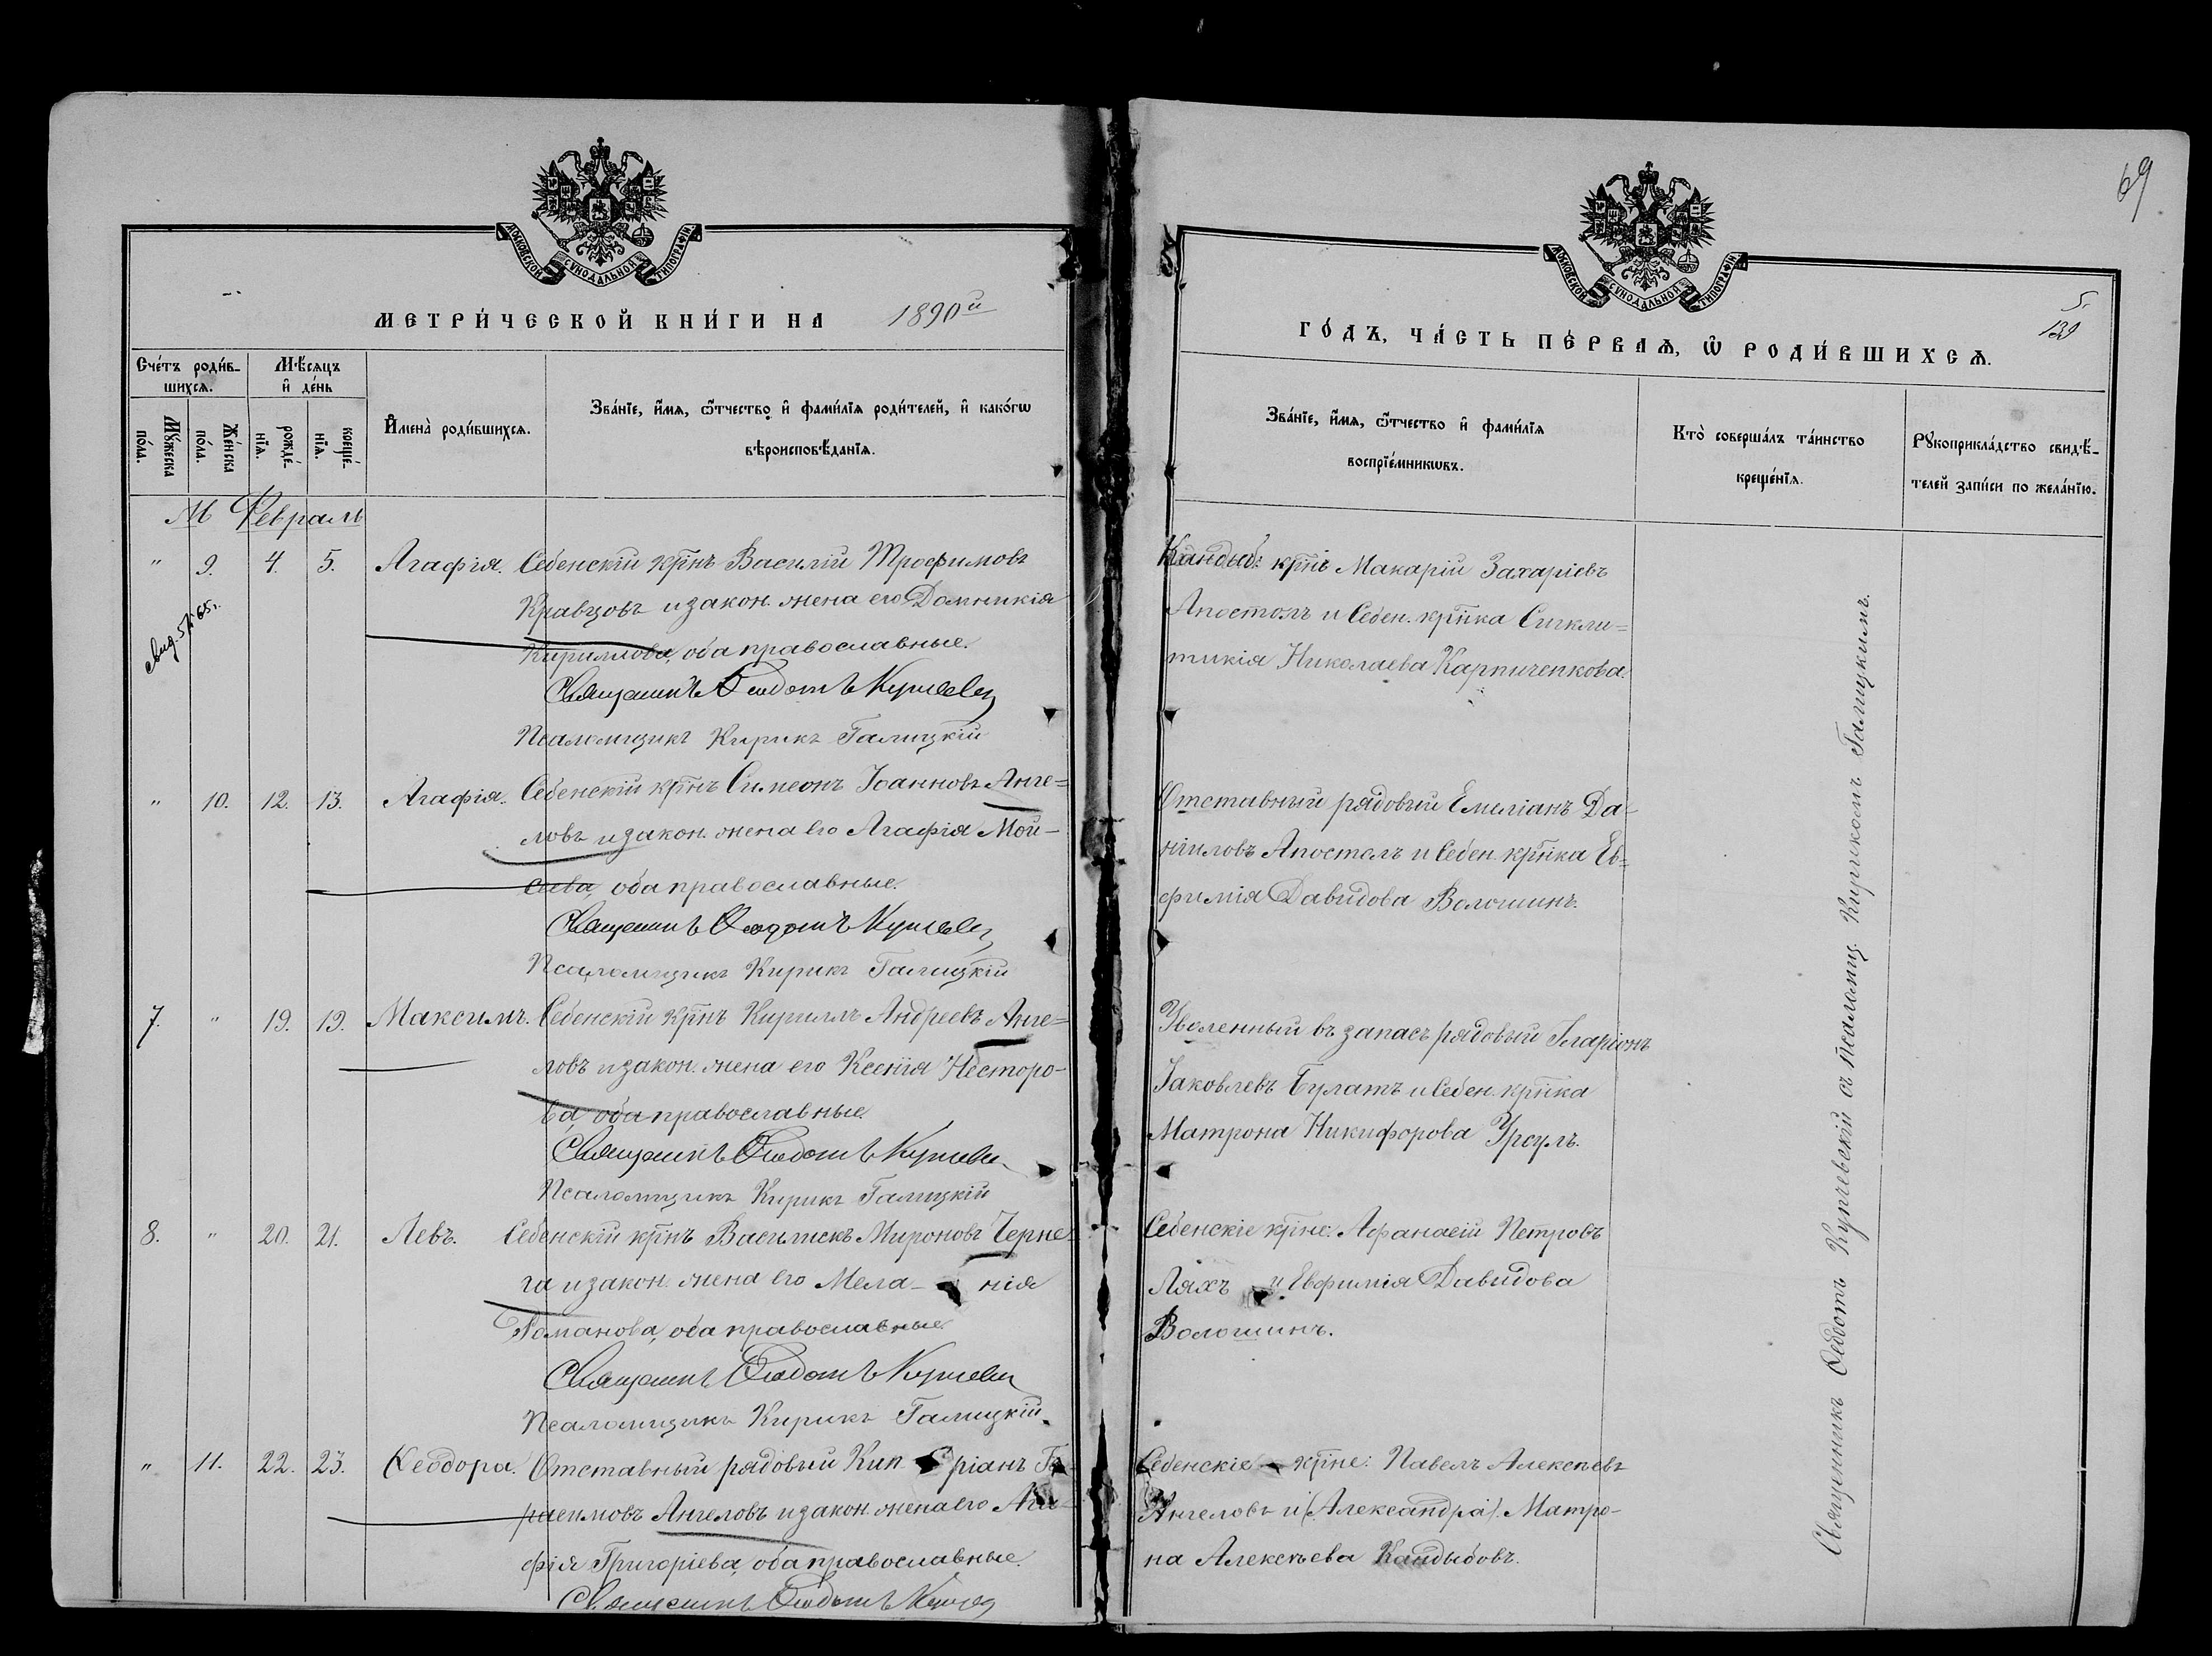 69
МОСКОВСКОЙ СѴНОДАЛЬНОЙ ТИПОГРАФІИ
МЕТРИ́ЧЕСКОЙ КНИ́ГИ НА 1890й
Сче́тъ роди́в-
шихсѧ.
Мꙋ́жеска по́ла.
Же́нска по́ла.
Мѣ́сѧцъ и҆ де́нь
рожде́-
нїѧ.
креще́-
нїѧ.
И҆мена̀ роди́вшихсѧ.
Зва́нїе, и҆́мѧ, ѻ҆́тчество и҆ фами́лїѧ роди́телей, и҆ како́гѡ
вѣроисповѣ́данїѧ.
М Февраль
" 9. 4. 5. Агафія. Себенскій крн̃ъ Василій Трофимовъ
Кравцовъ и закон. жена его Домникія
Кириллова, оба православные.
свид. № 65.
Священникъ Ѳеодотъ
Псаломщикъ Кирикъ Галицкій
" 10. 12. 13. Агафія. Себенскій крн̃ъ Симеонъ Іоанновъ Анге=
ловъ и закон. жена его Агафія Мой-
сеева, оба православные.
Священникъ Ѳеодотъ
Псаломщикъ Кирикъ Галицкій
7. " 19. 19. Максимъ. Себенскій крн̃ъ Кириллъ Андреевъ Анге=
ловъ и закон. жена его Ксенія Несторо-
ва, оба православные.
Священникъ Ѳеодотъ
Псаломщикъ Кирикъ Галицкій
8. " 20. 21. Левъ. Себенскій крн̃ъ Василискъ Мироновъ Черне-
га и закон. жена его Мела- нія
Романова, оба православные.
Священникъ Ѳеодотъ
Псаломщикъ Кирикъ Галицкій.
" 11. 22. 23. Ѳеодора. Отставный рядовый Кип ріанъ
расимовъ Ангеловъ и закон. жена его Ага-
фія Григоріева, оба православные.
Священникъ Ѳеодотъ
МОСКОВСКОЙ СѴНОДАЛЬНОЙ ТИПОГРАФІИ
5.
139
ГО́ДЪ, ЧА́СТЬ ПЕ́РВАѦ, Ѡ҆ РОДИ́ВШИХСѦ.
Зва́нїе, и҆́мѧ, ѻ҆́тчество и҆ фами́лїѧ
воспрїе́мникѡвъ.
Кто̀ соверша́лъ та́инство
креще́нїѧ.
Рꙋкоприкла́дство свидѣ́-
телей за́писи по жела́нїю.
Кандыб: крн̃ъ Макарій Захаріевъ
Апостолъ и Себен. крн̃ка Сигкли=
тикія Николаева Карпиченкова.
Отставный рядовый Емиліанъ Да-
ніиловъ Апостолъ и Себен. крн̃ка Ев=
фимія Давидова Волошинъ.
Уволенный въ запасъ рядовый Иларіонъ
Іаковлевъ Булатъ и Себен. крн̃ка
Матрона Никифорова Урсулъ.
Себенскіе крн̃е: Афанасій Петровъ
Ляхъ и Евфимія Давидова
Волошинъ.
Себенскіе крн̃е: Павелъ Алексѣевъ
Ангеловъ и (Александра). Матро-
на Алексѣева Кандыбовъ.
Священникъ Ѳеодотъ Купчевскій съ псаломщ. Кирикомъ Галицкимъ.